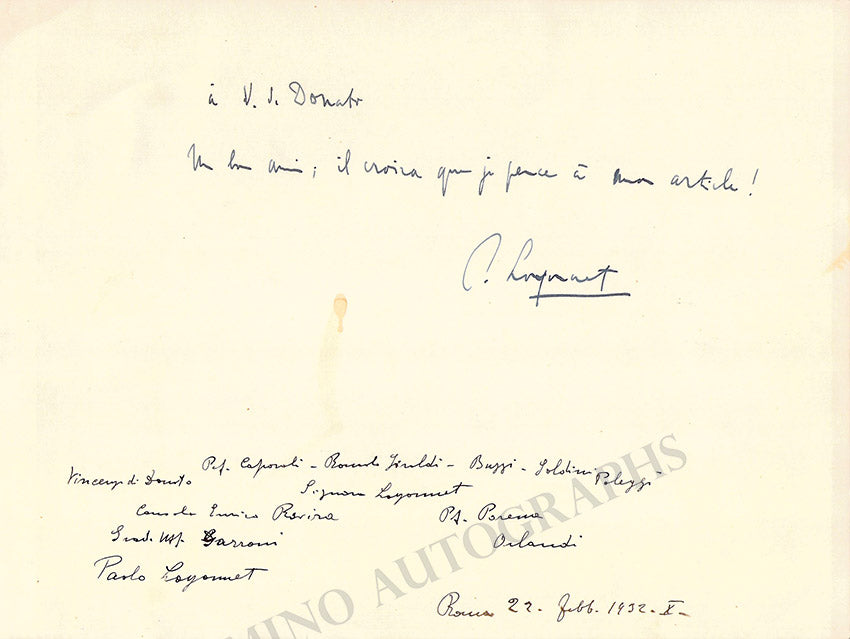 à V. di Donato
Un bon ami; il croira que je pense à mon article!
P. Loyonnet
Vincenzo di Donato Pf. Caporali - Romolo Giraldi - Buzzi - Soldini Poleggi
Signora Loyonnet
Console Enrico Rovira Pf. Porena
Grad. Uff. Garroni Orlandi
Paolo Loyonnet
Roma 22 - Febb. 1932 - X -
MINO AUTOGRAPHS